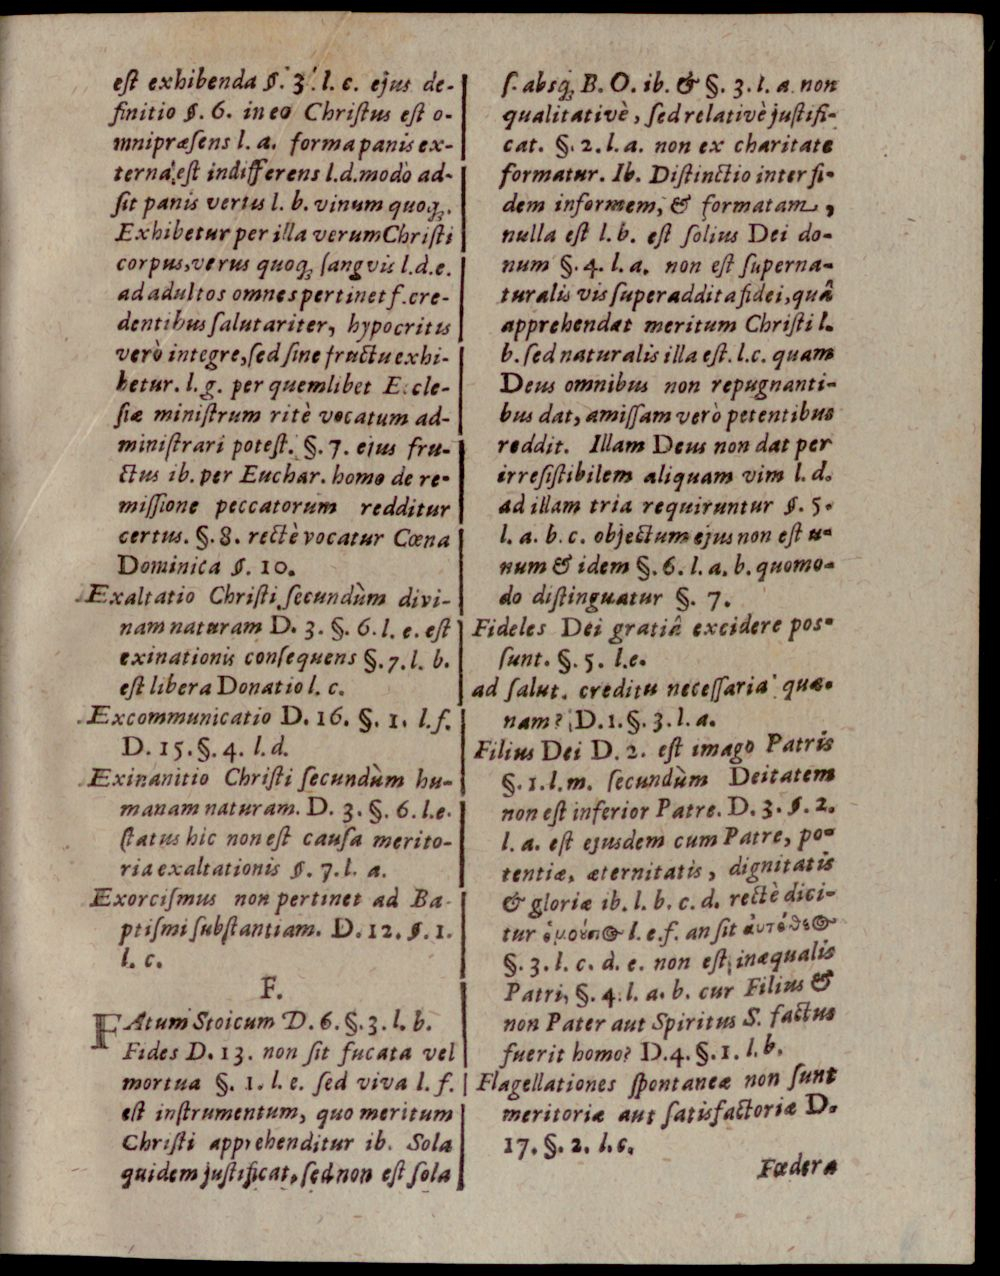 eſt exhibenda §. 3. l. c. ejus de-
finitio §. 6. in eo Chriſtus eſt o-
mnipræſens l. a. forma panis ex-
terna eſt indifferens l.d. modò ad-
ſit panis verus l. b. vinum quoq;.
Exhibetur per illa verum Chriſti
corpus, verus quoq; ſanguis l.d.e.
ad adultos omnes pertinet ſ. cre-
dentibus ſalutariter, hypocritis
verò integre, ſed ſine fructu exhi-
betur. l.g. per quemlibet Eccle-
ſiæ miniſtrum ritè vocatum ad-
miniſtrari poteſt. §. 7. ejus fru-
ctus ib. per Euchar. homo de re-
miſſione peccatorum redditur
certus. §. 8. rectè vocatur Cœna
Dominica §. 10.
Exaltatio Chriſti ſecundùm divi-
nam naturam D. 3. §. 6. l. e. eſt
exinationis conſequens §. 7. l. b.
eſt libera Donatio l. c.
Excommunicatio D. 16. §. 1. l.f.
D. 15. §. 4. l.d.
Exinanitio Chriſti ſecundùm hu-
manam naturam. D. 3. §. 6. l.e.
ſtatus hic non eſt cauſa merito-
ria exaltationis §. 7. l. a.
Exorciſmus non pertinet ad Ba-
ptiſmi ſubſtantiam. D. 12. §. 1.
l. c.
F.
FAtum Stoicum D. 6. §. 3. l. b.
Fides D. 13. non ſit fucata vel
mortua §. 1. l. e. ſed viva l. f.
eſt inſtrumentum, quo meritum
Chriſti apprehenditur ib. Sola
quidem juſtificat, ſed non eſt ſola
ſ. absq; B. O. ib. & §. 3. l. a. non
qualitativè, ſed relativè juſtifi-
cat. §. 2. l. a. non ex charitate
formatur. Ib. Diſtinctio inter fi-
dem informem, & formatam,
nulla eſt l. b. eſt ſolius Dei do-
num §. 4. l. a. non eſt ſuperna-
turalis vis ſuperaddita fidei, quâ
apprehendat meritum Chriſti l.
b. ſed naturalis illa eſt. l.c. quam
Deus omnibus non repugnanti-
bus dat, amiſſam verò petentibus
reddit. Illam Deus non dat per
irreſiſtibilem aliquam vim l. d.
ad illam tria requiruntur §. 5.
l. a. b. c. objectum ejus non eſt u-
num & idem §. 6. l. a. b. quomo-
do diſtinguatur §. 7.
Fideles Dei gratiâ excidere poſ-
ſunt. §. 5. l.e.
ad ſalut. creditu neceſſaria quæ-
nam? D. 1. §. 3. l. a.
Filius Dei D. 2. eſt imago Patris
§. 1. l. m. ſecundùm Deitatem
non eſt inferior Patre. D. 3. §. 2.
l. a. eſt ejusdem cum Patre, po-
tentiæ, æternitatis, dignitatis
& gloriæ ib. l. b. c. d. rectè dici-
tur l. e. f. an ſit αὐτόθεος
§. 3. l. c. d. e. non eſt inæqualis
Patri, §. 4. l. a. b. cur Filius &
non Pater aut Spiritus S. factus
fuerit homo? D. 4. §. 1. l. b.
Flagellationes ſpontaneæ non ſunt
meritoriæ aut ſatisfactoriæ D.
17. §. 2. l. c.
Fœdera